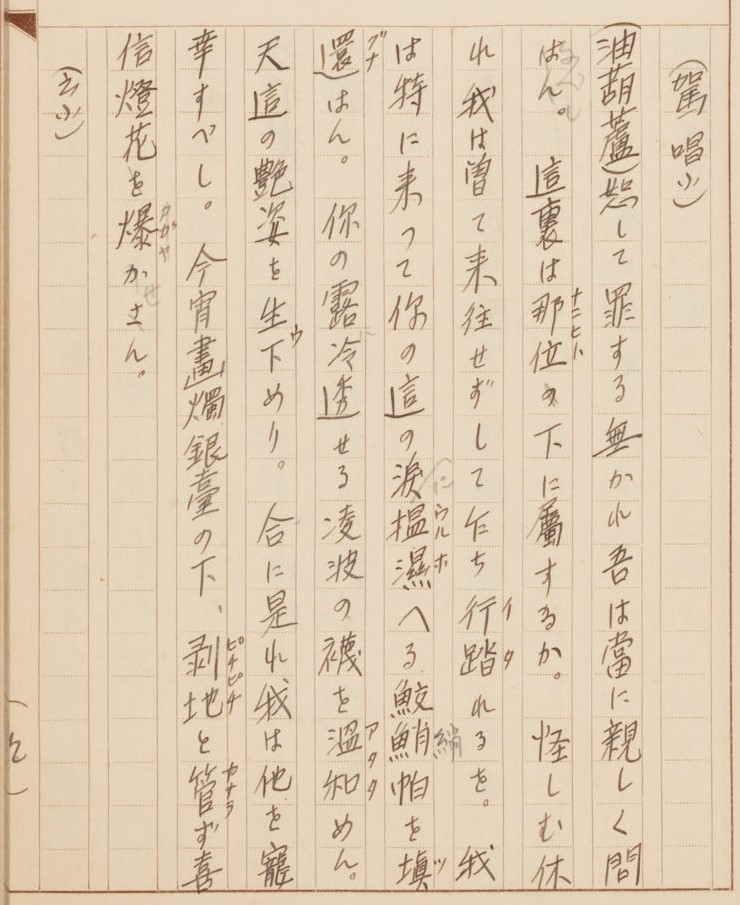 (駕唱ふ)
(油葫蘆)恕して罪する無かれ吾は當に親しく問
はん。這裏は那位の下に屬するか。怪しむ休
れ我は曽て来往せずして乍ち行踏れるを。我
は特に来つて你の這の淚搵濕へる鮫鮹帕を塡
還はん。你の露冷透せる凌波の襪を溫和めん。
天這の艷姿を生下めり。合に是れ我は他を寵
幸すべし。今宵畫燭銀臺の下、剥地と管ず喜
信燈花を爆かさん。
(云ふ)